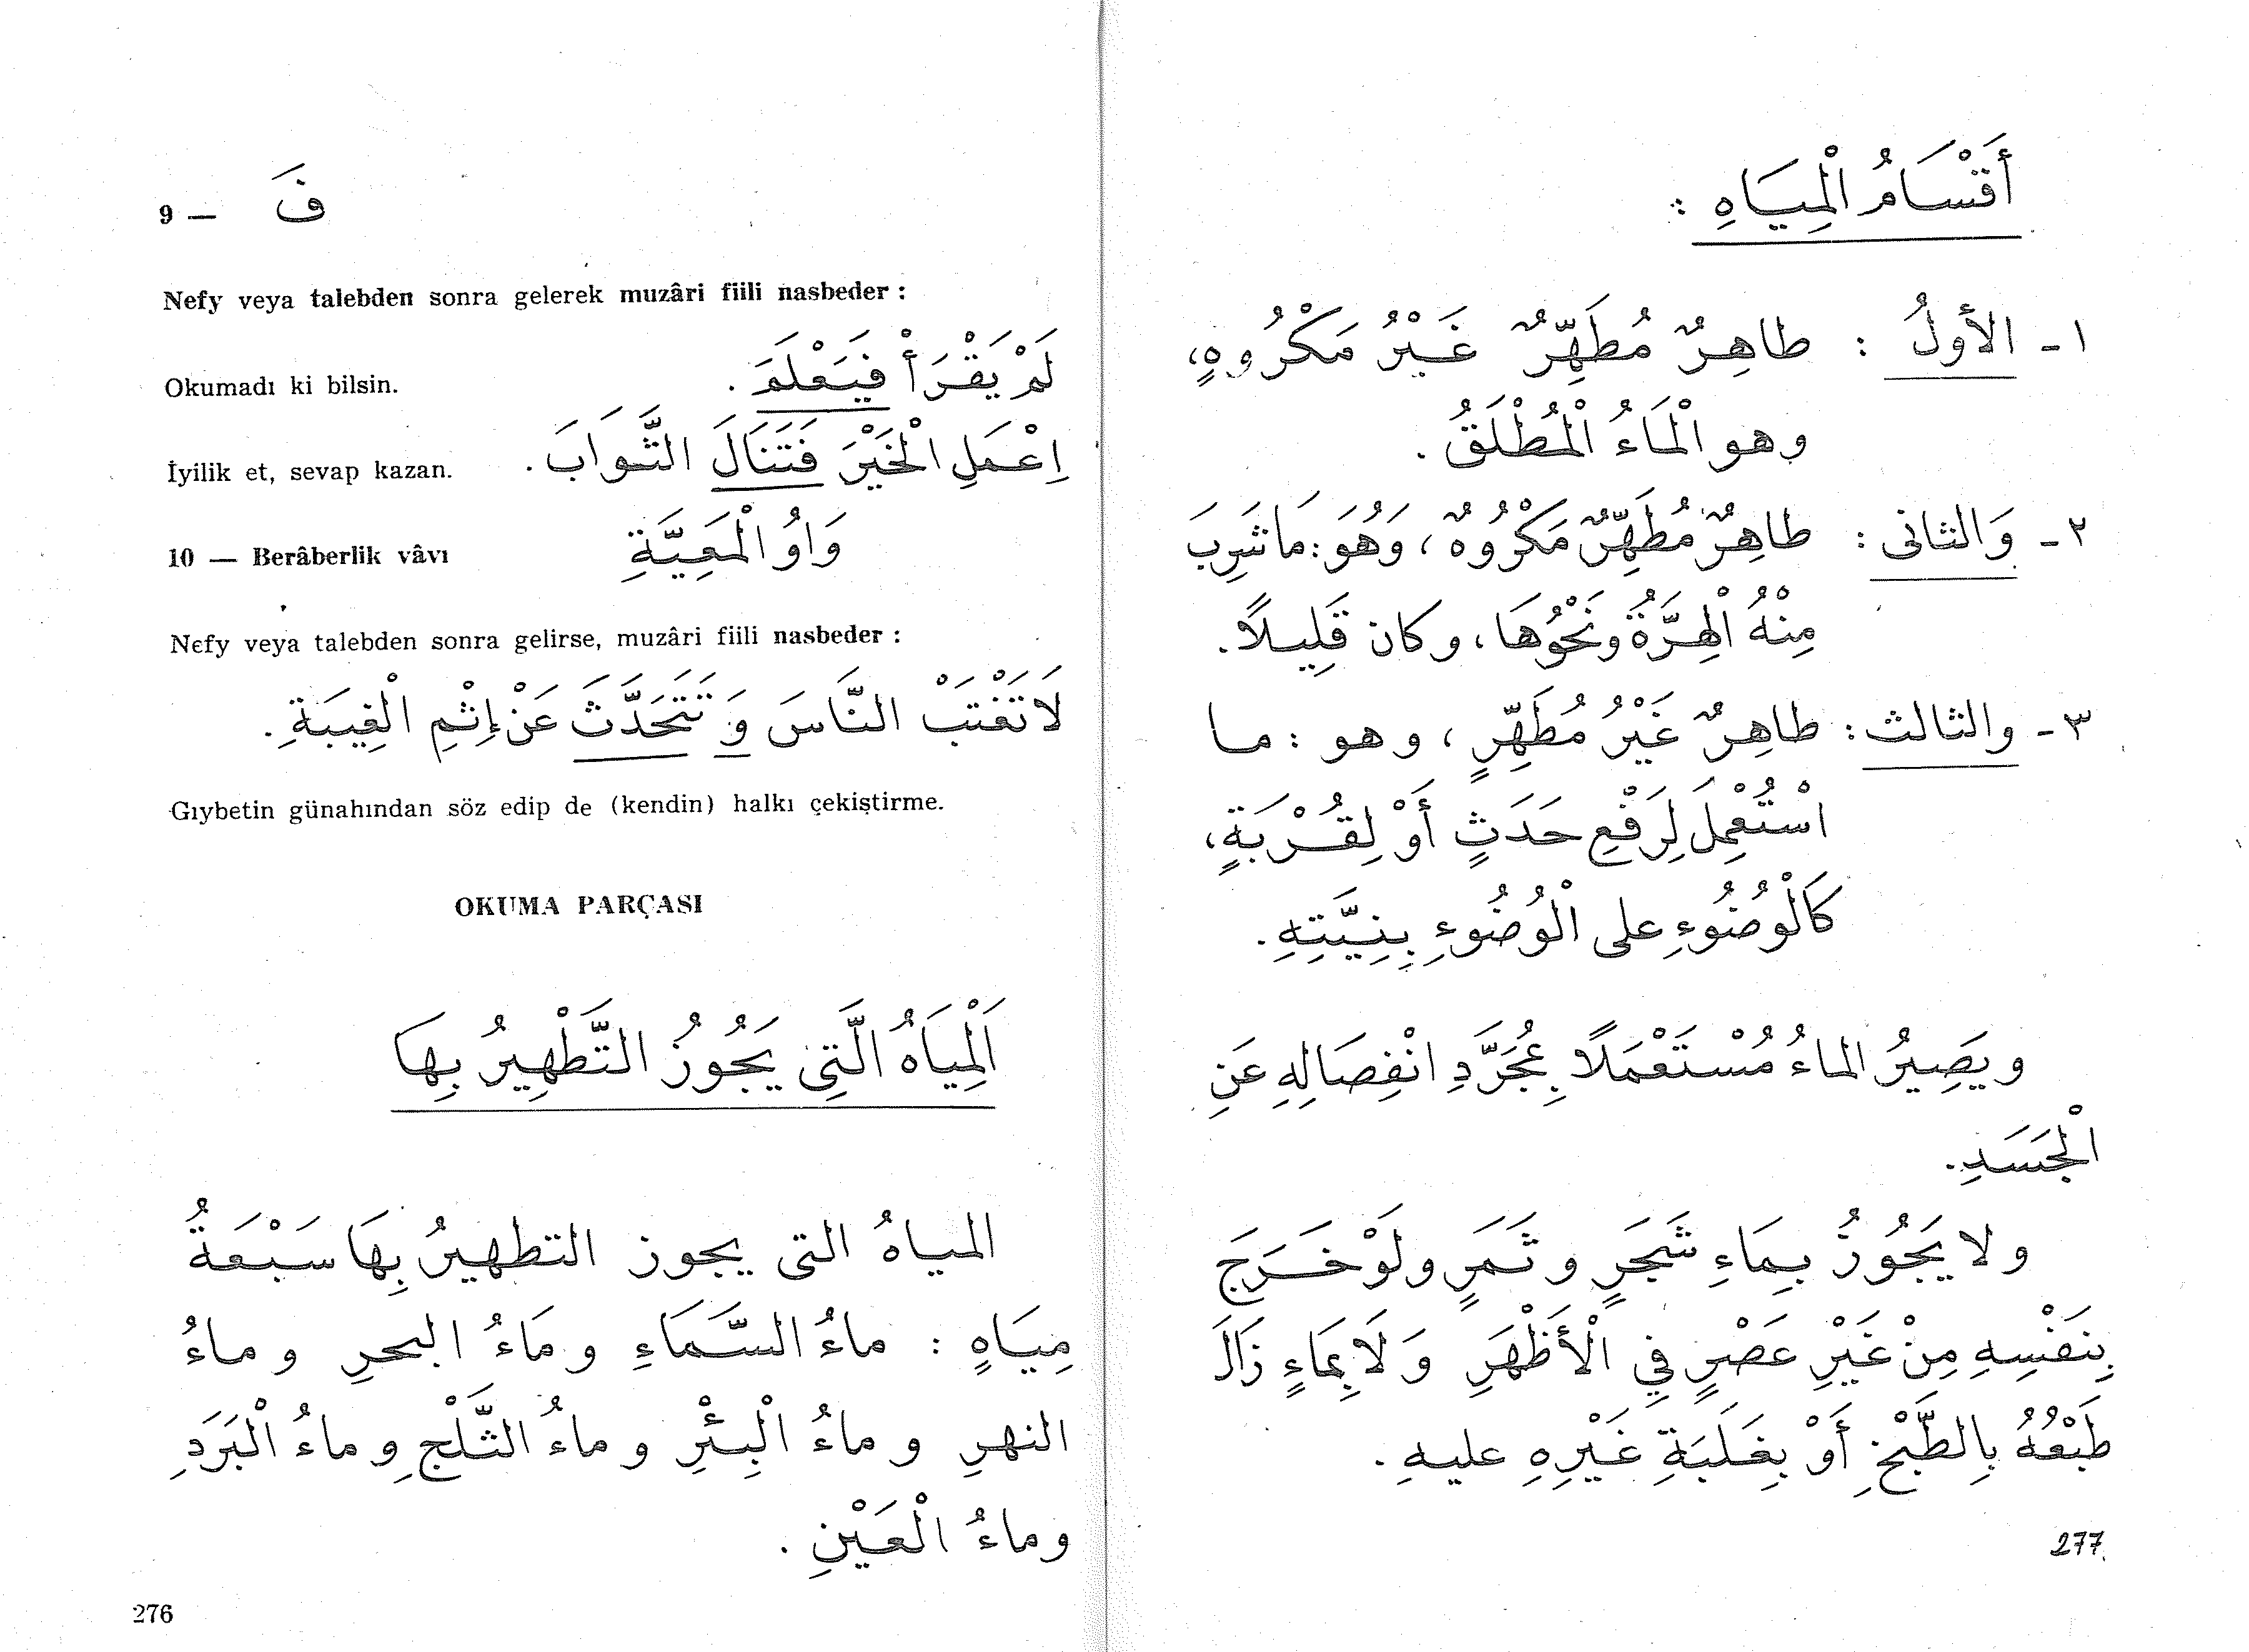 9 — فَ
Nefy veya talebden sonra gelerek muzâri fiili nasbeder :
Okumadı ki bilsin. لَمْ يَقْرَأْ فَيَعْلَمَ .
İyilik et, sevap kazan. اِعْمَلِ الْخَيْرَ فَتَنَالَ الثَّوَابَ .
10 — Berâberlik vâvı وَاوُ الْمَعِيَّةِ
Nefy veya talebden sonra gelirse, muzâri fiili nasbeder :
لَا تَغْتَبْ النَّاسَ وَ تَتَحَدَّثَ عَنْ إِثْمِ الْغِيبَةِ .
Gıybetin günahından söz edip de (kendin) halkı çekiştirme.
OKUMA PARÇASI
اَلْمِيَاهُ الَّتِي يَجُوزُ التَّطْهِيرُ بِهَا
المياهُ التى يجوز التطهيرُ بِهَا سَبْعَةُ
مِيَاهٍ : ماءُ السَّمَاءِ و مَاءُ البحرِ و ماءُ
النهرِ و ماءُ الْبِئْرِ و ماءُ الثَّلْجِ و ماءُ الْبَرَدِ
وماءُ الْعَيْنِ .
276
أَقْسَامُ الْمِيَاهِ :
١ - الأولُ : طاهِرٌ مُطَهِّرٌ غَيْرُ مَكْرُوهٍ،
وهو الْمَاءُ الْمُطْلَقُ .
٢ - وَالثانى : طاهِرٌ مُطَهِّرٌ مَكْرُوهٌ ، وَهُوَ : مَا شَرِبَ
مِنْهُ الْهِرَّةُ ونَحْوُهَا ، وكان قَلِيلًا .
٣ - والثالث : طاهِرٌ غَيْرُ مُطَهِّرٍ ، وهو : ما
اسْتُعْمِلَ لِرَفْعِ حَدَثٍ أَوْ لِقُرْبَةٍ ،
كَالْوُضُوءِ على الْوُضُوءِ بِنِيَّتِهِ .
ويَصِيرُ الماءُ مُسْتَعْمَلًا بِمُجَرَّدِ انْفِصَالِهِ عَنِ
الْجَسَدِ .
ولا يَجُوزُ بِمَاءِ شَجَرٍ و ثَمَرٍ ولَوْ خَرَجَ
بِنَفْسِهِ مِنْ غَيْرِ عَصْرٍ فِي الْأَظْهَرِ وَلَا بِمَاءٍ زَالَ
طَبْعُهُ بِالطَّبْخِ أَوْ بِغَلَبَةِ غَيْرِهِ عليهِ .
277